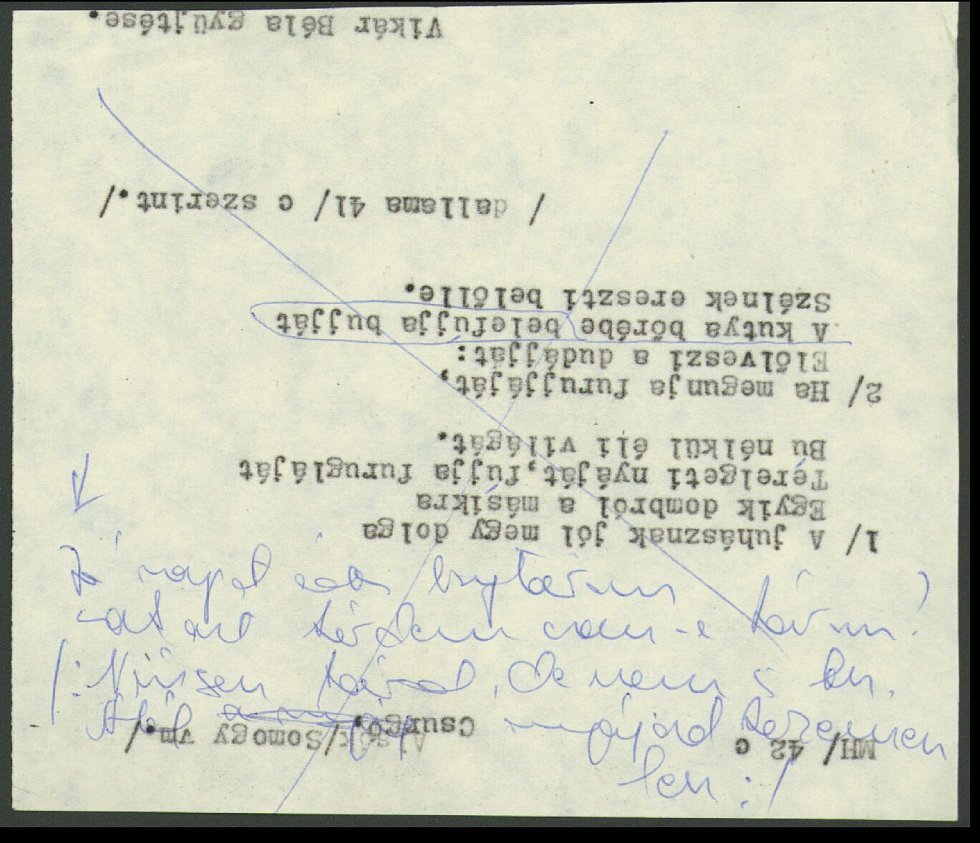 MH/ 42 c Csurgó./Somogy vm./
1/ A juhásznak jól megy dolga
Egyik dombról a másikra
Térelgeti nyáját,fujja furugláját
Bu nélkül éli világát.
2/ Ha megunja furujjáját,
Előlveszi a dudájját:
A kutya bőrébe belefujja bujját
Szélnek ereszti belőlle.
/ dallama 41/ c szerint./
Vikár Béla gyüjtése.
Jó napot
kérdem van-e
/: Nincsen de nem is len.
len :/